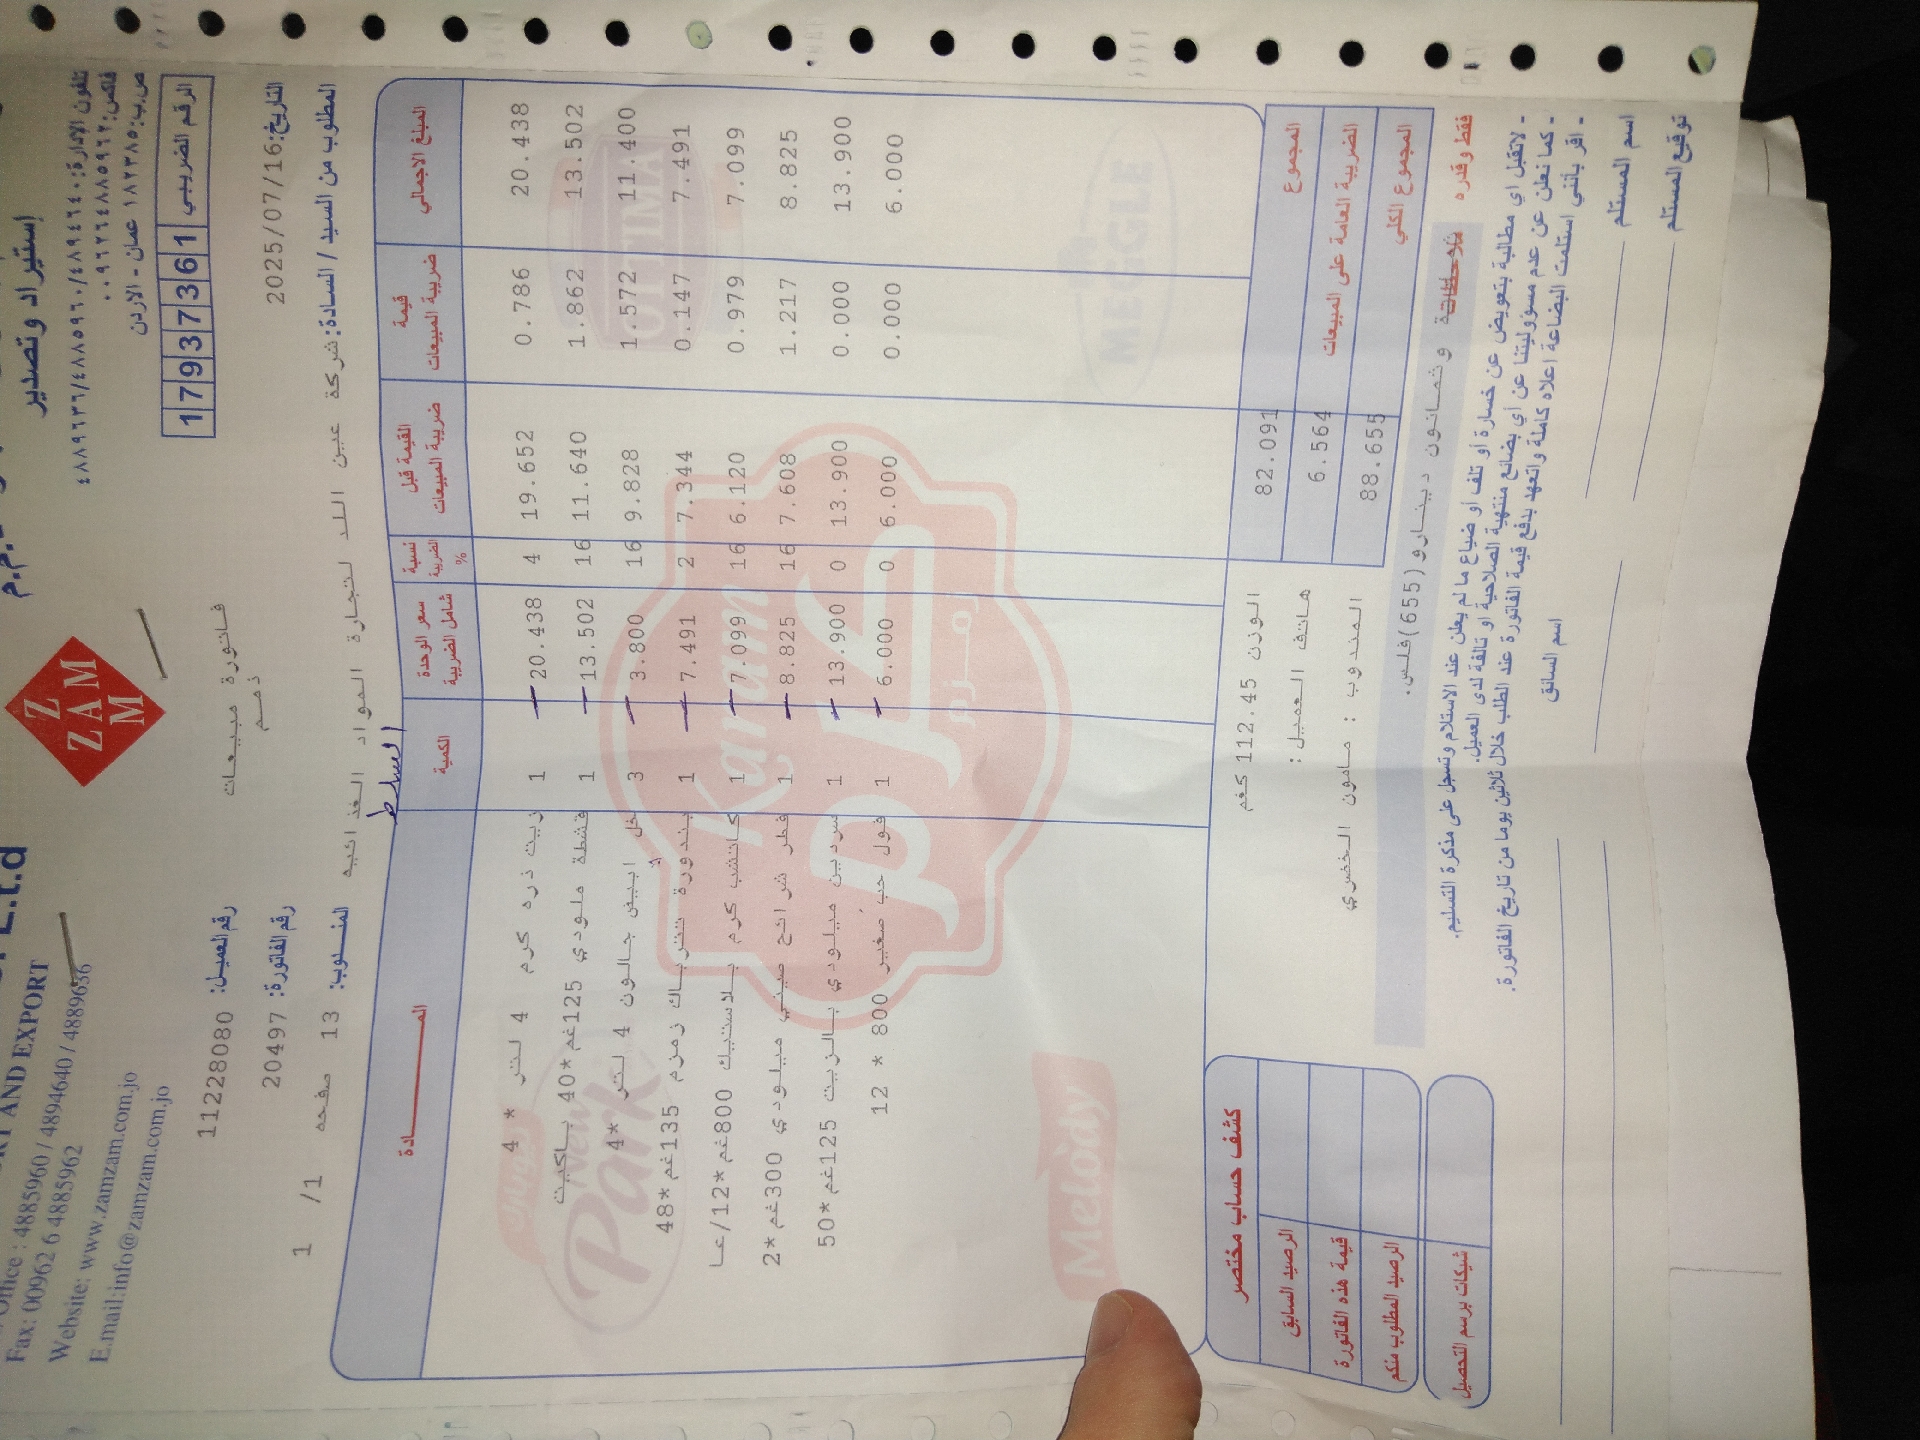 إستيراد وتصدير
AND EXPORT
Office : 4885960 / 4894640 / 4889636
Fax: 00962 6 4885962
Website: www.zamzam.com.jo
E.mail:info@zamzam.com.jo
Z
ZAM
M
تلفون الإدارة: ٤٨٨٩٦٣٦/٤٨٨٥٩٦٠/٤٨٩٤٦٤٠
فاكس: ٠٠٩٦٢٦٤٨٨٥٩٦٢
ص.ب: ١٨٢٣٣٨٥ عمان - الاردن
الرقم الضريبي 17937361
فاتورة مبيعات
ذمم
رقم العميل: 11228080
التاريخ: 2025/07/16
رقم الفاتورة: 20497
المطلوب من السيد / السادة: شركة عين اللد لتجارة المواد الغذائيه
المندوب: 13 صفحه 1 /1
السلط
المادة الكمية سعر الوحدة شامل الضريبة نسبة الضريبة % القيمة قبل ضريبة المبيعات قيمة ضريبة المبيعات المبلغ الاجمالي
زيت ذره كرم 4 لتر * 4 1 20.438 4 19.652 0.786 20.438
قشطة ملودي 125غم*40 باكيت 1 13.502 16 11.640 1.862 13.502
خل ابيض جالون 4 لتر *4 3 3.800 16 9.828 1.572 11.400
بندورة تتراباك زمزم 135غم*48 1 7.491 2 7.344 0.147 7.491
كاتشب كرم بلاستيك 800غم*12/عا 1 7.099 16 6.120 0.979 7.099
فطر شرائح صيني ميلودي 300غم*2 1 8.825 16 7.608 1.217 8.825
سردين ميلودي بالزيت 125غم*50 1 13.900 0 13.900 0.000 13.900
فول حب صغير 800 * 12 1 6.000 0 6.000 0.000 6.000
زمزم
Karam
كرم
OPTIMA
MEGGLE
New
Park
Melody
الوزن 112.45 كغم
هاتف العميل :
المندوب : مامون الخضري
المجموع 82.091
الضريبة العامة على المبيعات 6.564
المجموع الكلي 88.655
كشف حساب مختصر
الرصيد السابق
قيمة هذه الفاتورة
الرصيد المطلوب منكم
شيكات برسم التحصيل
فقط وقدره وثمانون دينارو(655)فلس.
- لاتقبل اي مطالبة بتعويض عن خسارة او تلف أو ضياع ما لم يعلن عند الاستلام وتسجل على مذكرة التسليم.
- كما نعلن عن عدم مسؤوليتنا عن أي بضائع منتهية الصلاحية او تالفة لدى العميل.
- اقر بأنني استلمت البضاعة اعلاه كاملة واتعهد بدفع قيمة الفاتورة عند الطلب خلال ثلاثين يوما من تاريخ الفاتورة.
اسم المستلم
اسم السائق
توقيع المستلم